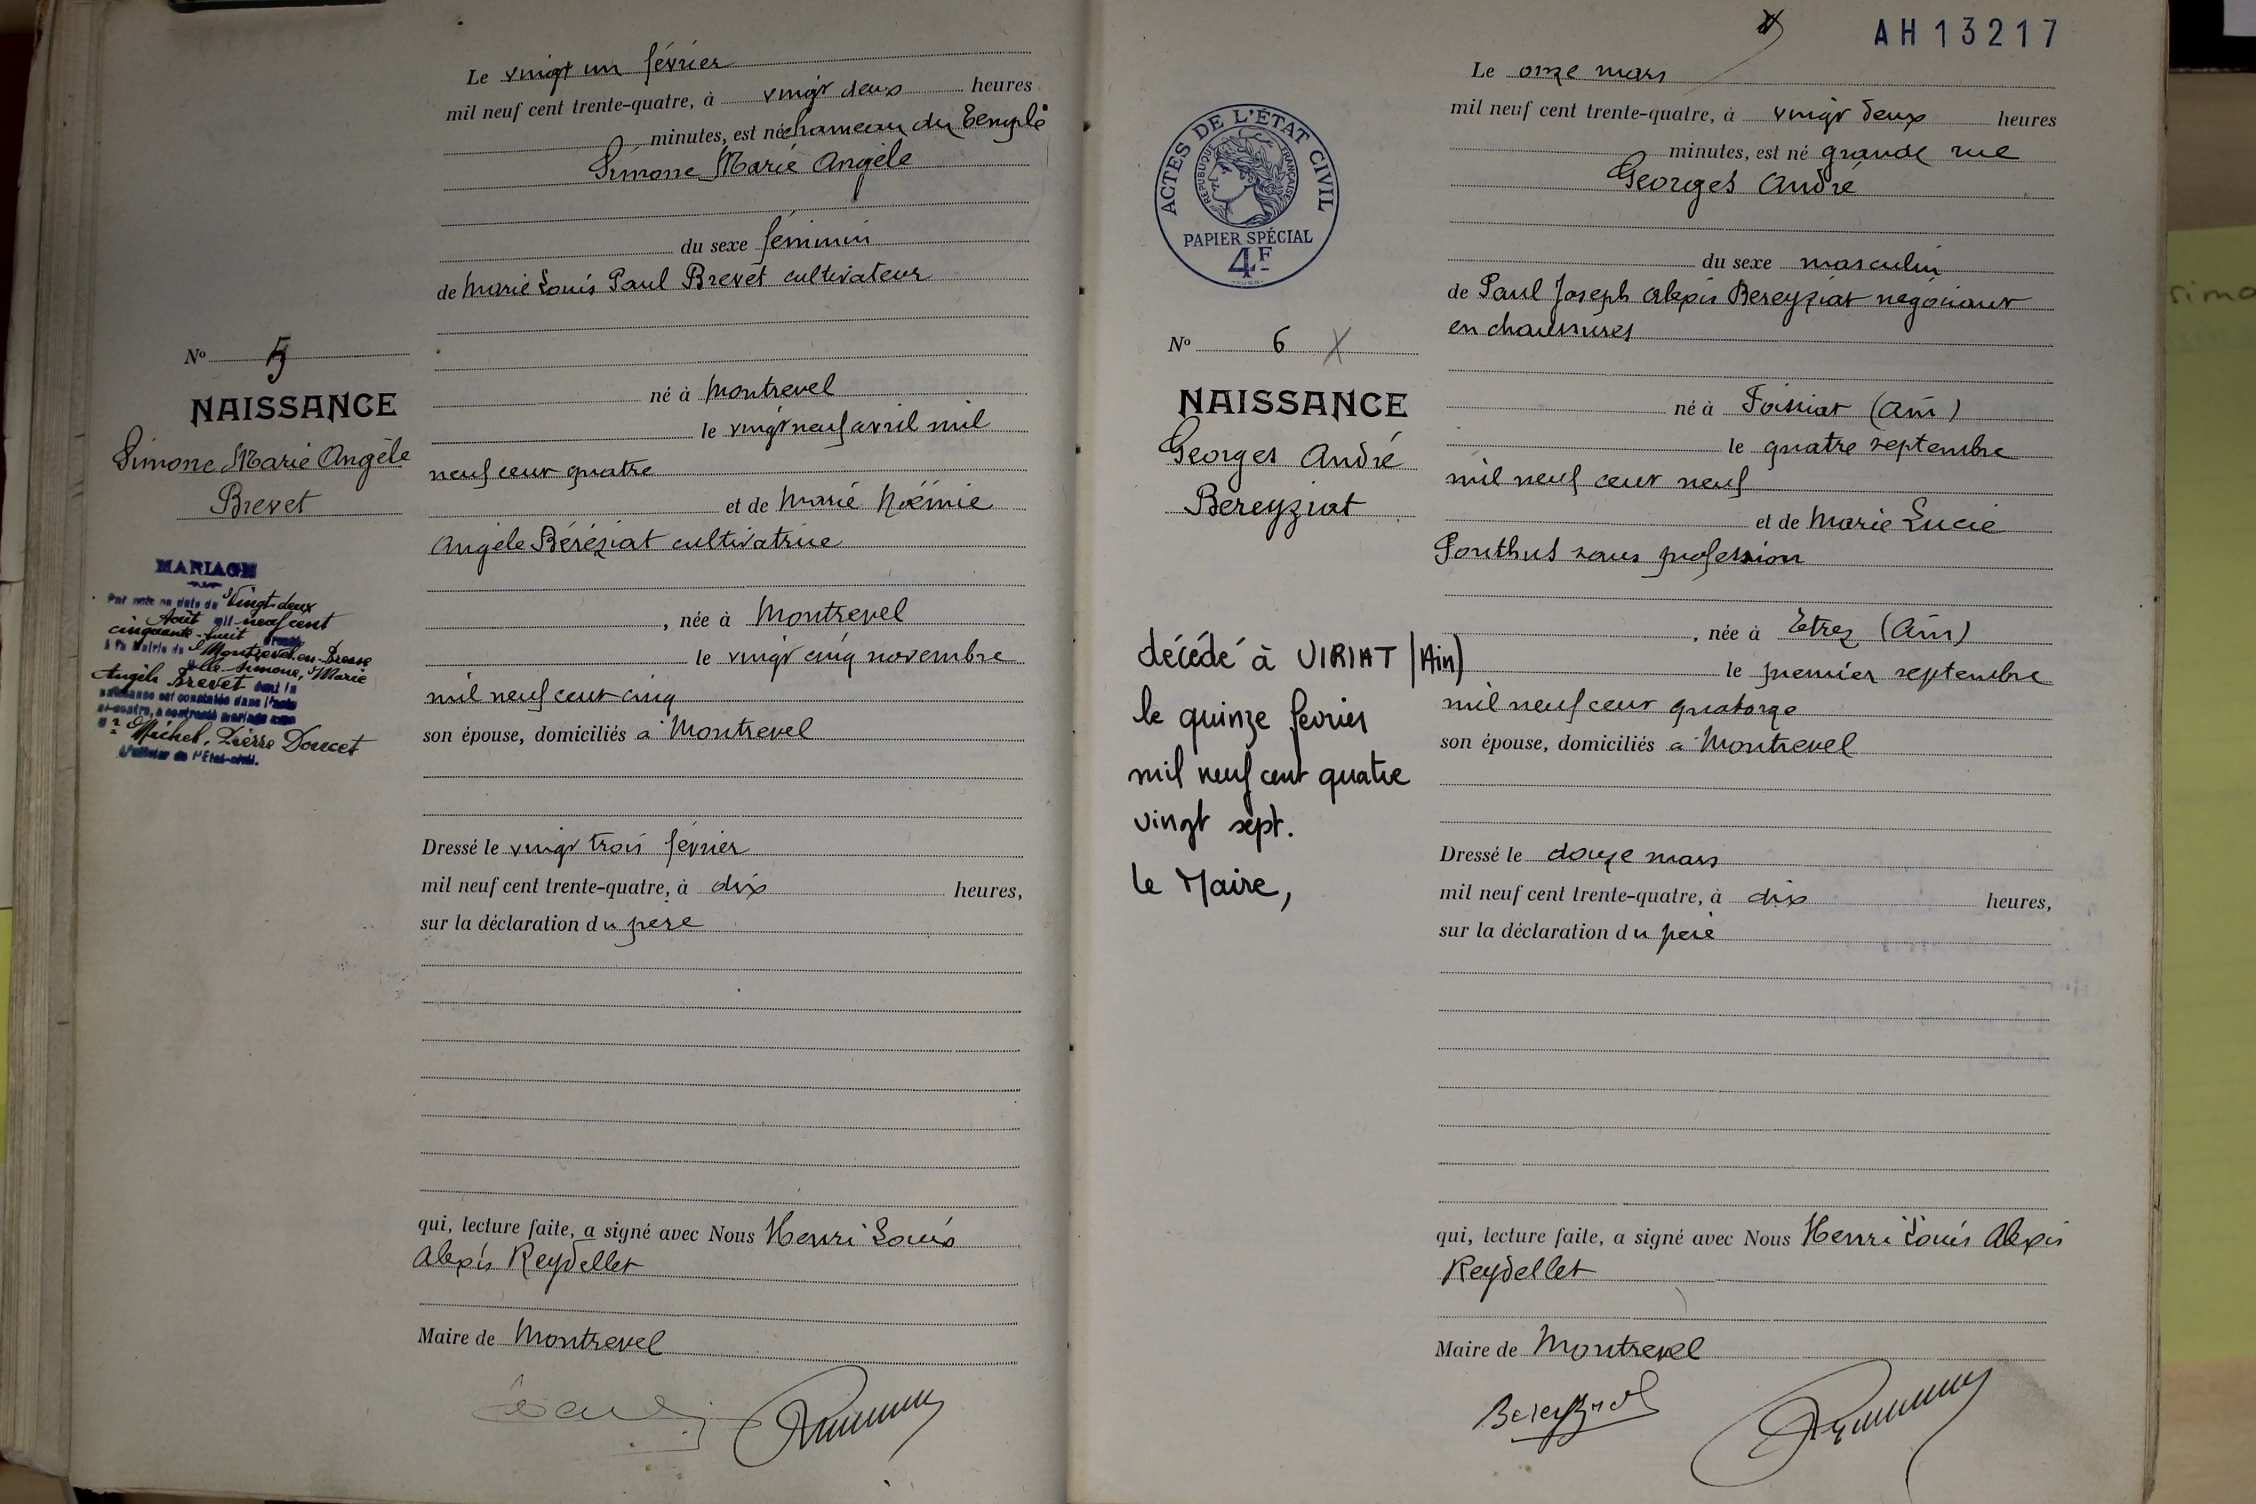 Le vingt un février
mil neuf cent trente-quatre, à vingt deux heures
minutes, est née hameau du Temple
Simone Marie Angèle
du sexe féminin
de Marie Louis Paul Brevet cultivateur
né à Montrevel
le vingt neuf avril mil
neuf cent quatre
et de Marie Noémie
Angèle Béréziat cultivatrice
, née à Montrevel
le vingt cinq novembre
mil neuf cent cinq
son épouse, domiciliés à Montrevel
Dressé le vingt trois février
mil neuf cent trente-quatre, à dix heures,
sur la déclaration du père
qui, lecture faite, a signé avec Nous Henri Louis
Alexis Reydellet
Maire de Montrevel
No 5
NAISSANCE
Simone Marie Angèle
Brevet
MARIAGE
Par acte en date du Vingt-deux
Août mil neuf cent
cinquante-huit dressé
à la Mairie de Montrevel-en-Bresse
Mlle Simone, Marie
Angèle Brevet dont la
naissance est constatée dans l'acte
ci-contre, a contracté mariage avec
Mr Michel, Pierre Doucet
L'officier de l'Etat-civil.
AH13217
Le onze mars
mil neuf cent trente-quatre, à vingt deux heures
minutes, est né grande rue
Georges André
du sexe masculin
de Paul Joseph Alexis Bereyziat négociant
en chaussures
né à Foissiat (Ain)
le quatre septembre
mil neuf cent neuf
et de Marie Lucie
Ponthus sans profession
, née à Etrez (Ain)
le premier septembre
mil neuf cent quatorze
son épouse, domiciliés à Montrevel
Dressé le douze mars
mil neuf cent trente-quatre, à dix heures,
sur la déclaration du père
qui, lecture faite, a signé avec Nous Henri Louis Alexis
Reydellet
Maire de Montrevel
Bereyziat
ACTES DE L'ÉTAT CIVIL
RÉPUBLIQUE FRANÇAISE
PAPIER SPÉCIAL
4F
No 6 X
NAISSANCE
Georges André
Bereyziat
décédé à VIRIAT (Ain)
le quinze fevrier
mil neuf cent quatre
vingt sept.
le Maire,
simo